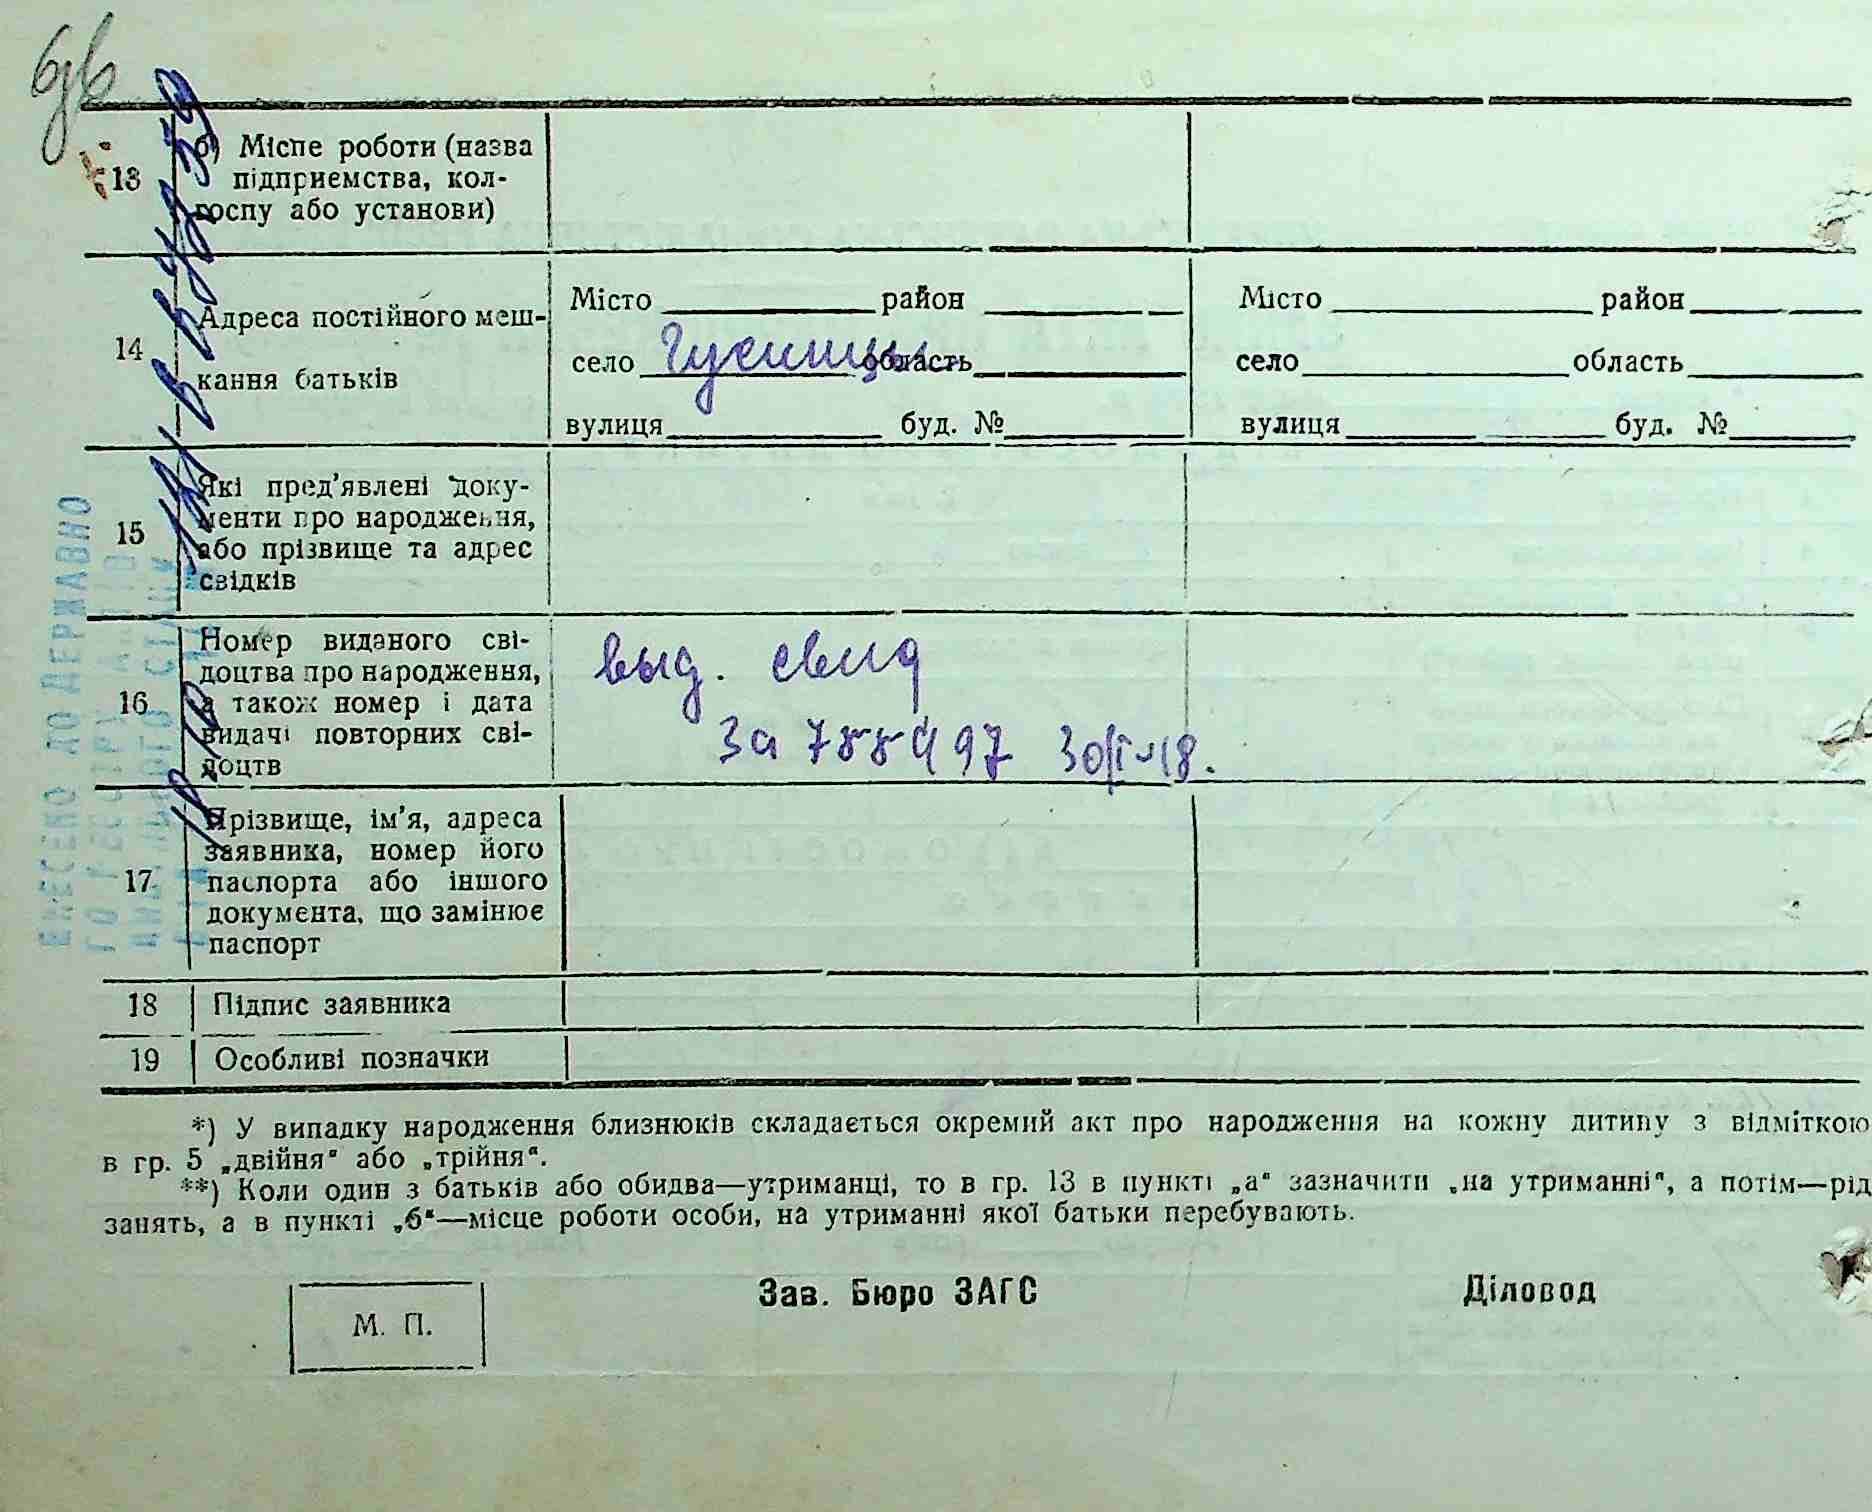 13 б) Місце роботи (назва
підприємства, кол-
госпу або установи)
14 Адреса постійного меш-
кання батьків
Місто район
село Гусинцы область
вулиця буд. №
Місто район
село область
вулиця буд. №
15 Які пред'явлені доку-
менти про народження,
або прізвище та адрес
свідків
16 Номер виданого сві-
доцтва про народження,
а також номер і дата
видачі повторних сві-
доцтв
выд. свид
17 Прізвище, ім'я, адреса
заявника, номер його
паспорта або іншого
документа, що замінює
паспорт
18 Підпис заявника
19 Особливі позначки
*) У випадку народження близнюків складається окремий акт про народження на кожну дитину з відміткою
в гр. 5 „двійня“ або „трійня“.
**) Коли один з батьків або обидва—утриманці, то в гр. 13 в пункті „а“ зазначити „на утриманні“, а потім—рід
занять, а в пункті „б“—місце роботи особи, на утриманні якої батьки перебувають.
М. П.
Зав. Бюро ЗАГС
Діловод
ВНЕСЕНО ДО ДЕРЖАВНО
ГО РЕЄСТРУ АКТІВ
ЦИВІЛЬНОГО СТАНУ